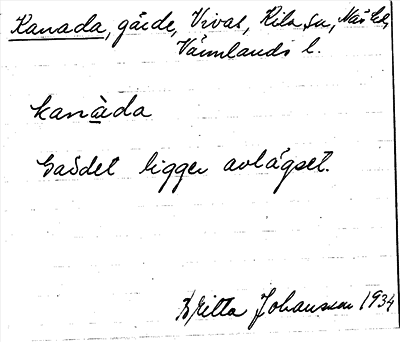 Kanada, gärde, Vivat, Kila sn, Näs hd,
Värmlands l.
kanàda
Gärdet ligger avlägset.
Britta Johansson 1934